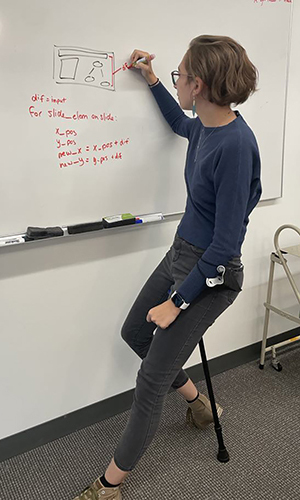 dif = input
for slide_elem on slide:
x_pos
y_pos
new_x = x_pos + dif
new_y = y_pos + dif